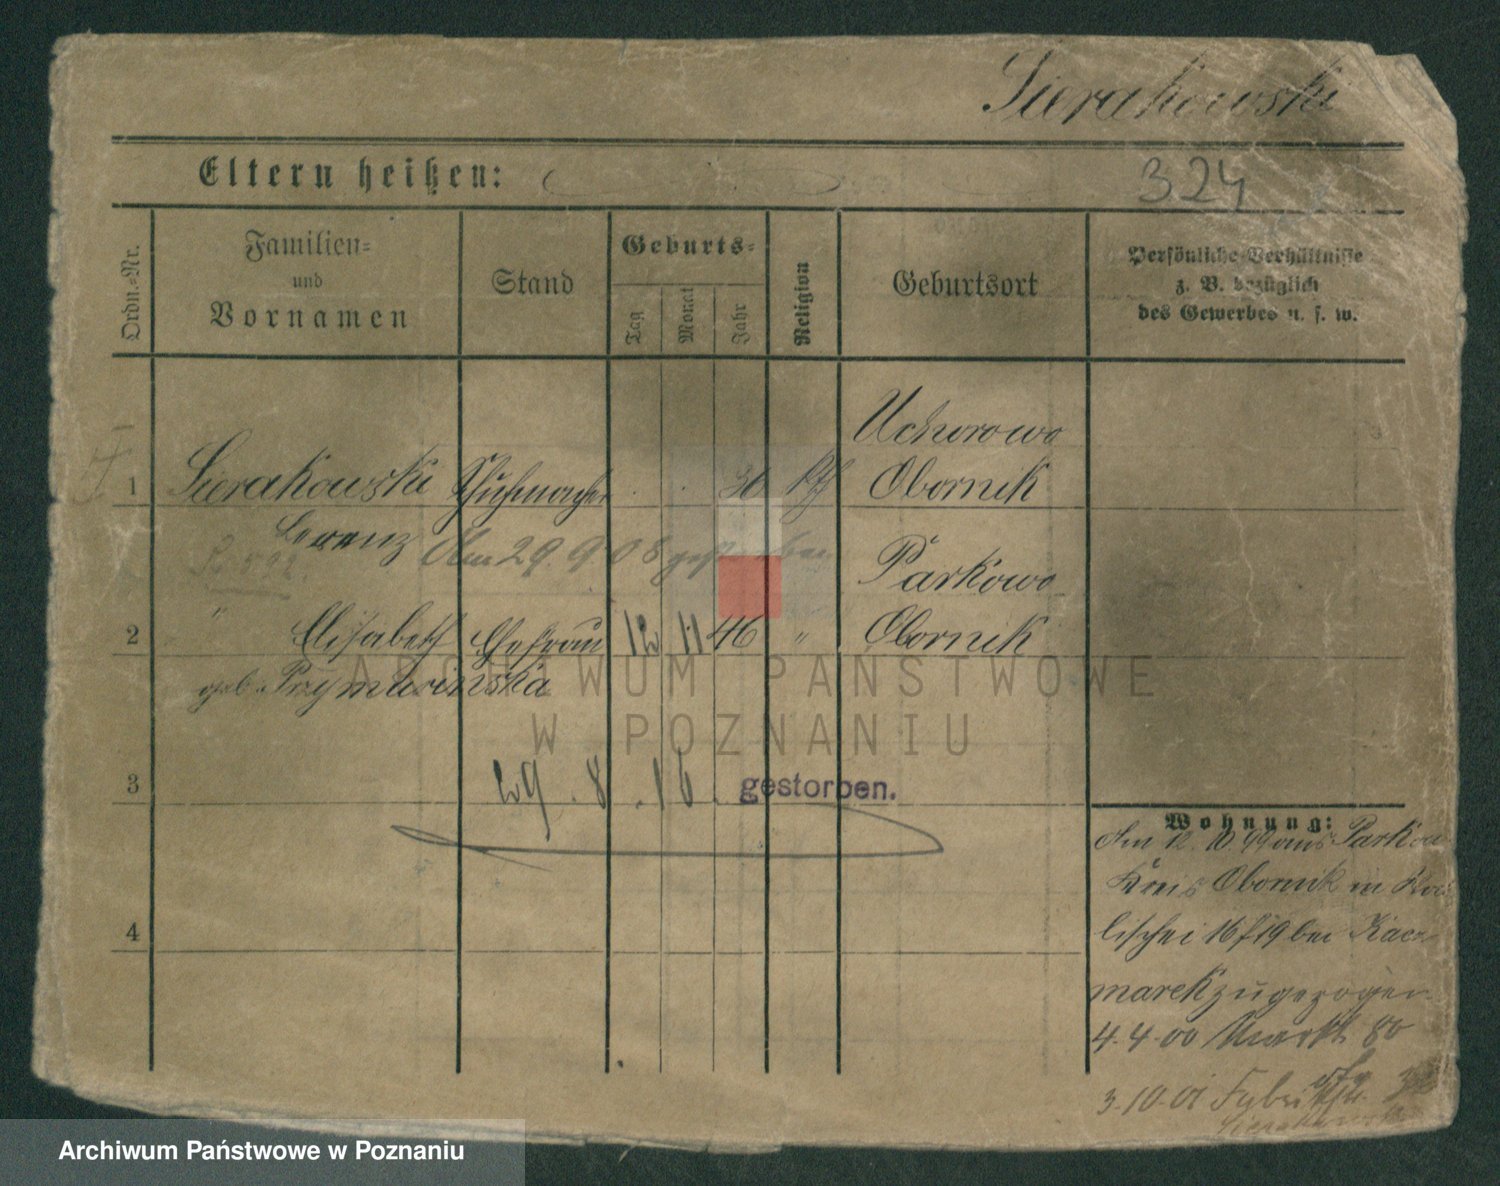 Sierakowski
Eltern heißen:
324
Ordn.-Nr.
Familien-
und
Vornamen
Stand
Geburts-
Tag
Monat
Jahr
Religion
Geburtsort
Persönliche Verhältnisse
z. B. bezüglich
des Gewerbes u. s. w.
Uchorowo
1 Sierakowski Schuhmacher . . 30 Kth Obornik
Lorenz Am 29.9.08 gestorben
Parkowo
2 " Elisabeth Ehefrau 12 11 46 " Obornik
geb. Przymusinska
ARCHIWUM PAŃSTWOWE
W POZNANIU
3 29. 8. 16. gestorben.
4
Wohnung:
Am 12. 10. 99 aus Parkowo
Kreis Obornik in
lischei 16/19 bei Kacz
marek zugezogen
4.4.00 Markt 80
3.10.01
Sierakowski
Archiwum Państwowe w Poznaniu